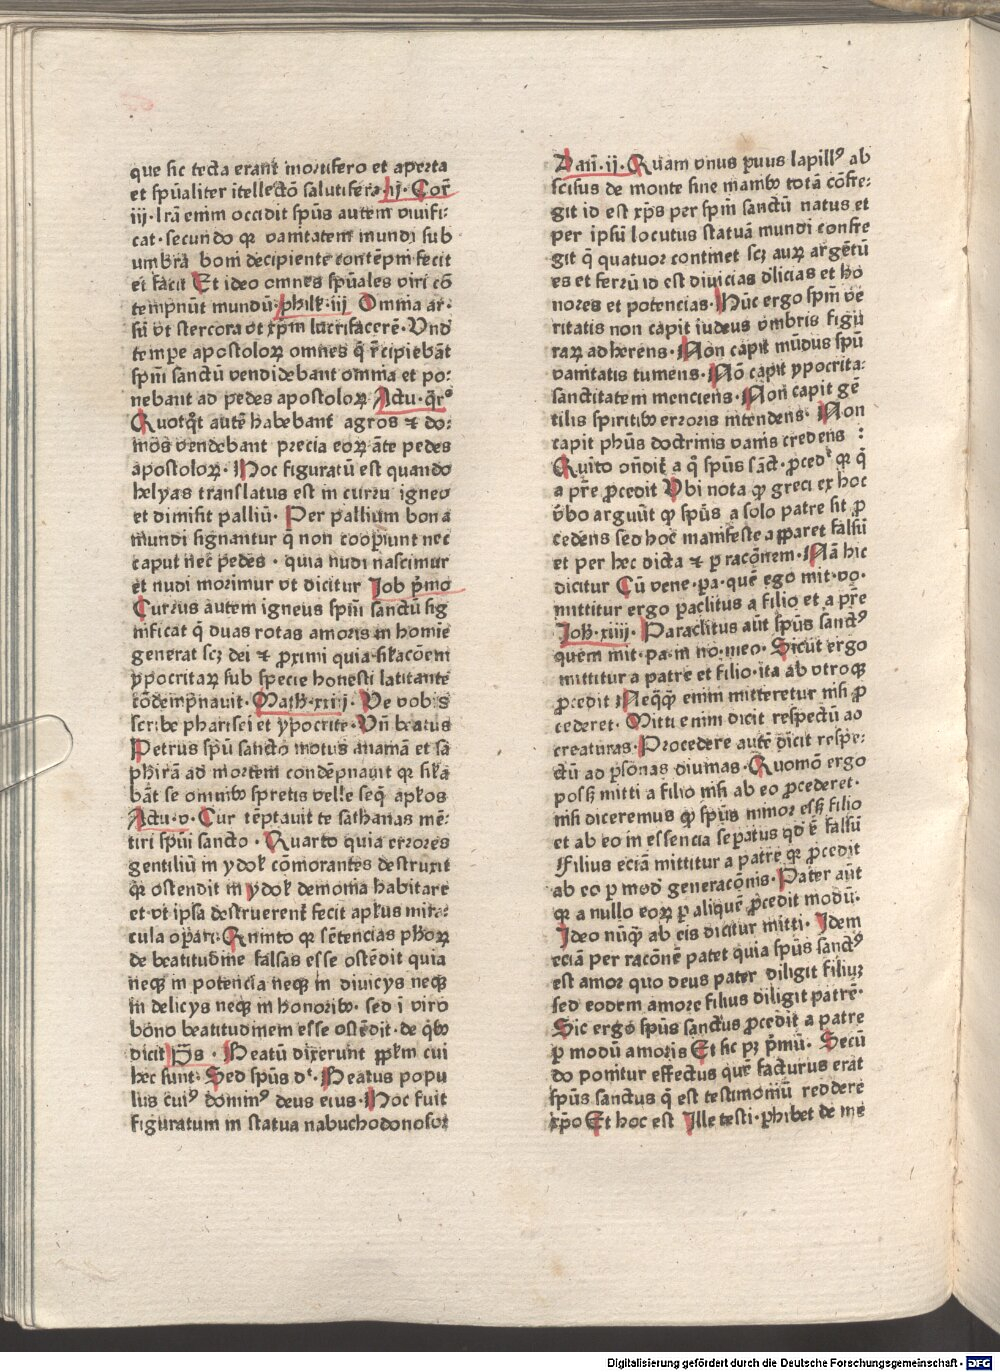 que sic tecta erant mortifero et aperta
et spũaliter itellectõ salutifera·ij· Coꝝ
iij·Lrã enim occidit spũs autem viuifi-
cat·secundo qꝛ vanitatem mundi sub
umbra boni decipiente contẽpni fecit
et facit Et ideo omnes spũales viri cõ
tempnũt mundũ·phile·iij Omnia ar-
si vt stercora vt xp̃m lucrifacerẽ·Vnd
tempe apostoloꝝ omnes q̃ recipiebãt
spm̃ sanctũ vendidebant omnia et po-
nebant ad pedes apostoloꝝ Actu·qr̃°
Quotqt autẽ habebant agros ⁊ do-
mos vendebant precia eoꝝ ãte pedes
apostoloꝝ·Hoc figuratũ est quando
helyas translatus est in curru igneo
et dimisit palliũ·Per pallium bona
mundi signantur q̃ non coopiunt nec
caput nec pedes·quia nudi nascimur
et nudi morimur vt dicitur Job p̃mo
Currus autem igneus spm̃ sanctũ sig
nificat q̃ duas rotas amoris in homine
generat scꝫ dei ⁊ proximi quia sikacõem
ypocritaꝝ sub specie honesti latitante
cõdempnauit·Math·xxiij·Ve vobis
scribe pharisei et ypocrite·Vñ beatus
Petrus spũ sancto motus anamã et sa
phirã ad mortem condẽpnauit qꝛ sika
bãt se omnibꝰ spretis velle seq̃ apl̃os
Actu·v·Cur tẽptauit te sathanas mẽ-
tiri spũi sancto·Quarto quia errores
gentiliũ in ydol̃ cõmorantes destruxit
qꝛ ostendit in ydol̃ demonia habitare
et vt ipsa destruerent fecit apl̃us mira-
cula opari·Quinto qꝛ sẽtencias ph̃oꝝ
de beatitudine falsas esse ostẽdit quia
neqꝫ in potencia neqꝫ in diuicys neqꝫ
in delicys neqꝫ in honoribꝰ·sed i viro
bono beatitudinem esse ostẽdit·de qbꝰ
dicit p̃s·Beatũ dixerunt pp̃lm cui
hec sunt·Sed spũs dt·Beatus popu
lus cuiꝰ dominꝰ deus eius·Hoc fuit
figuratum in statua nabuchodonosor
Dañ·ij·Quam vnus puus lapillꝰ ab
scisus de monte sine manibꝰ totã cõfre-
git id est xp̃s per spm̃ sanctũ natus et
per ipsũ locutus statuã mundi confre
git q̃ quatuor continet scꝫ auꝝ argẽtũ
es et ferrũ id est diuicias dlicias et ho
nores et potencias·Hũc ergo spm̃ ve
ritatis non capit iudeus vmbris figu
raꝝ adherens·Non capit mũdus spũ
vanitatis tumens·Nõ capit ypocrita-
sanctitatem menciens·Non capit gẽ
tilis spiritibꝰ erroris intendens·Non
capit ph̃us doctrinis vanis credens :
Quito oñdit a q̃ spũs sãct·procedt qꝛ q̃
a pr̃e procedit Vbi nota ꝙ greci ex hoc
ṽbo arguũt ꝙ spũs a solo patre sit p
cedens sed hoc manifeste apparet falsũ
et per hec dicta ⁊ p racõnem·Nã hic
dicitur Cũ vene·pa·quẽ ego mit·vo·
mittitur ergo paclitus a filio et a pr̃e
Joh̃·xiiij·Paraclitus aũt spũs sanctꝰ
quem mit·pa·in no·meo·Sicut ergo
mittitur a patre et filio·ita ab vtroqꝫ
procedit Neqꝫ enim mitteretur nisi p
cederet·Mitti enim dicit respectũ ad
creaturas·Procedere autẽ dicit respe-
ctũ ad p̃sonas diuinas·Quomõ ergo
possꝫ mitti a filio nisi ab eo procederet·
nisi diceremus ꝙ spũs minor essꝫ filio
et ab eo in essencia sepatus qd ẽ falsũ
Filius eciã mittitur a patre qꝛ procedit
ab eo p mod generacõnis·Pater aũt
qꝛ a nullo eoꝝ p aliquẽ procedit modũ·
Ideo nũqꝫ ab eis dicitur mitti·Idem
eciã per racõnẽ patet quia spũs sanctꝰ
est amor quo deus pater diligit filiuꝫ
sed eodem amore filius diligit patrẽ·
Sic ergo spũs sanctus procedit a patre
p modũ amoris Et sic pꝫ p̃mũ·Secũ
do ponitur effectus quẽ facturus erat
spũs sanctus q̃ est testimoniũ reddere
xp̃o Et hoc est Ille testi·phibet de me
Digitalisierung gefördert durch die Deutsche Forschungsgemeinschaft - DFG